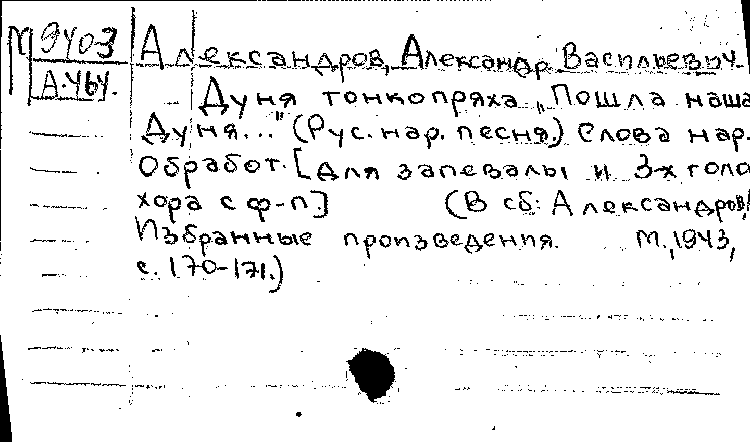 М 9403
А.464.
Александров, Александр Васильевич
— Дуня тонкопряха „Пошла наша
Дуня..." (Рус. нар. песня.) Слова нар.
Обработ. [для запевалы и 3-х голо
хора с ф-п.] (В сб: Александров,
Избранные произведения. М., 1943,
с. 170-171.)